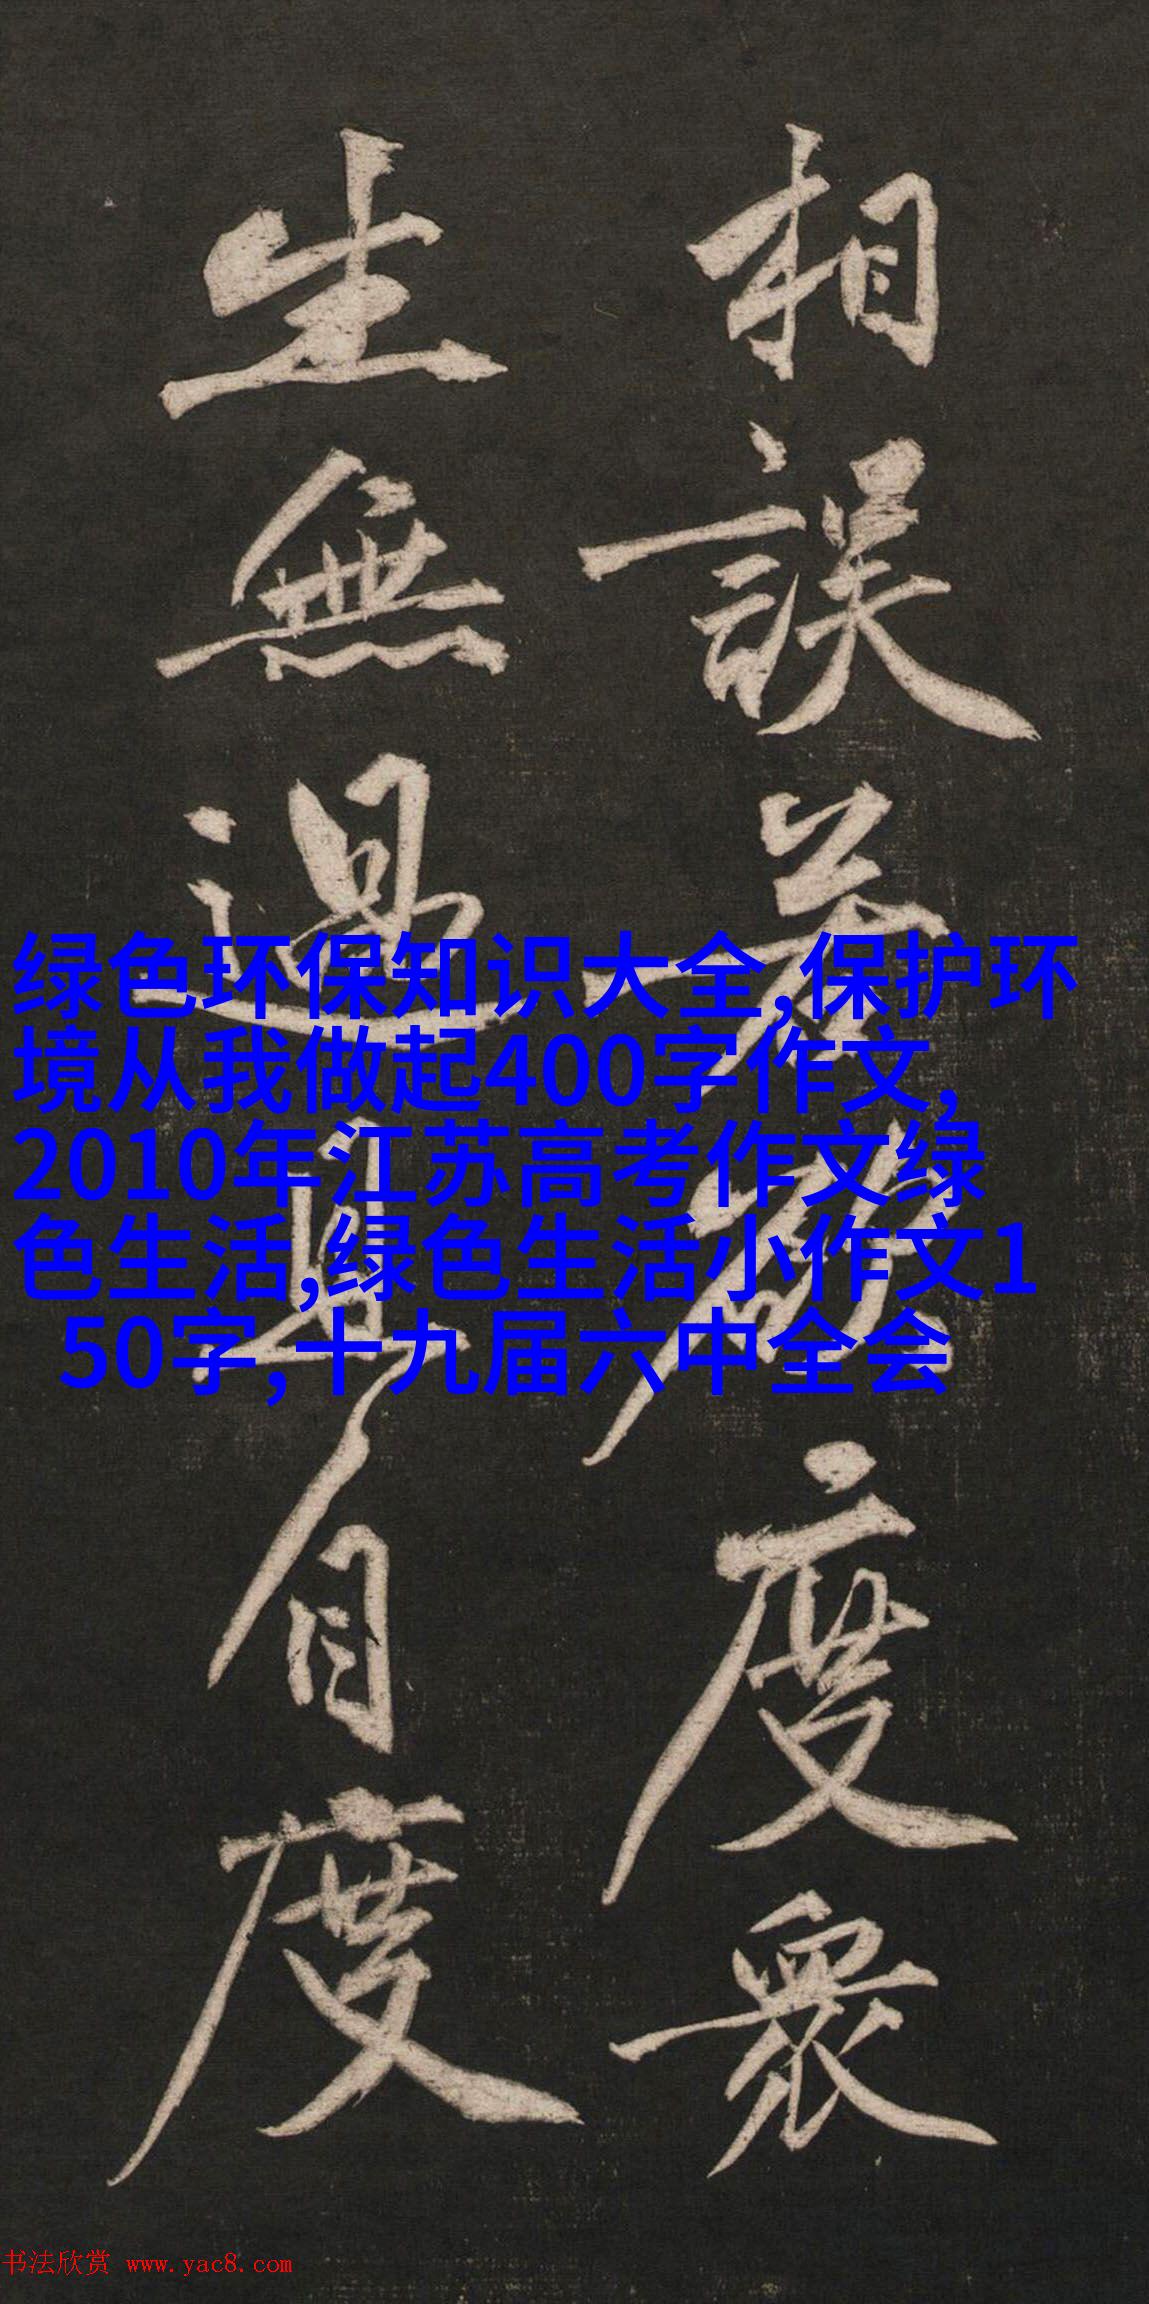 相誤若欲度衆
生無過且自度
绿色环保知识大全,保护环
境从我做起400字作文,
2010年江苏高考作文绿
色生活,绿色生活小作文1
50字,十九届六中全会
书法欣赏 www.yac8.com